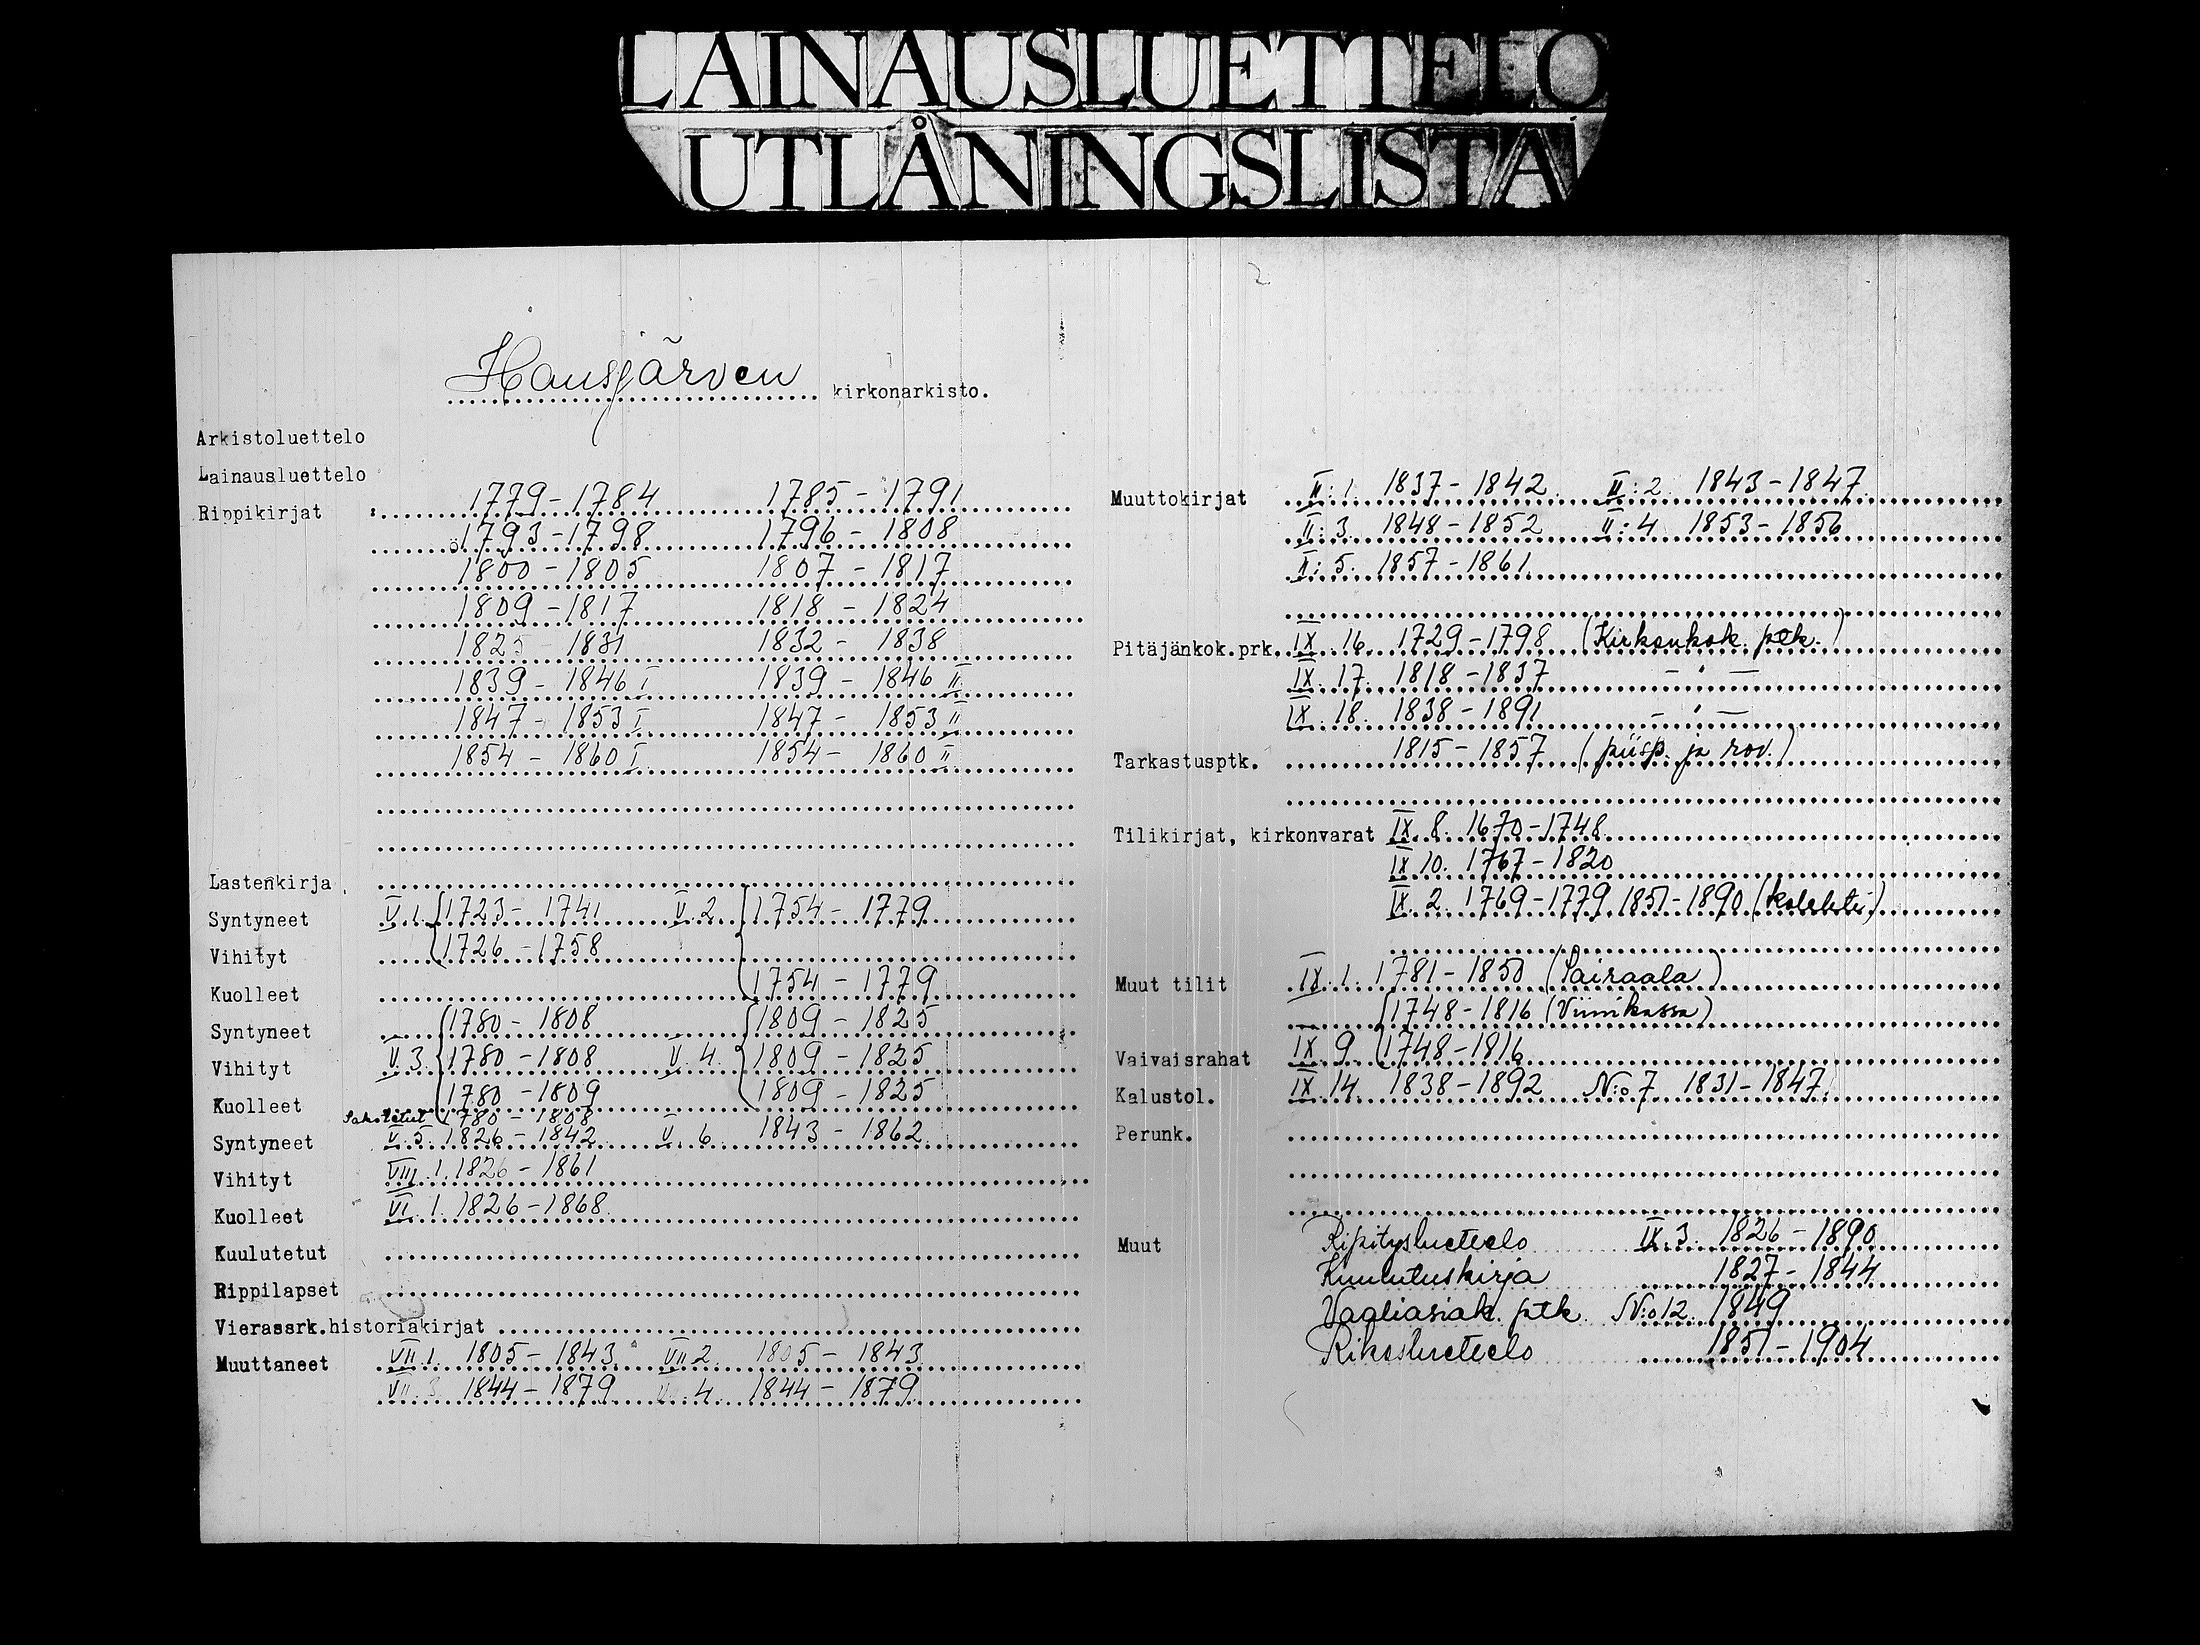 LAINAUSLUETTELO
UTLÅNINGSLISTA
2
Hausjärven kirkonarkisto.
Arkistoluettelo
Lainausluettelo
Rippikirjat : 1779-1784 1785-1791
1793-1798 1796-1808
1800-1805 1807-1817
1809-1817 1818-1824
1825 1831 1832-1838
1839-1846 I 1839-1846 II
1847-1853 I 1847-1853 II
1854-1860 I 1854-1860 II
Lastenkirja
Syntyneet V.1. 1723-1741 V.2. 1754-1779
Vihityt 1726-1758
Kuolleet 1754-1779
Syntyneet 1780-1808 1809-1825
Vihityt V.3. 1780-1808 V.4. 1809-1825
Kuolleet 1780-1809 1809-1825
1780-1808
Syntyneet V.5. 1826-1842 V.6. 1843-1862
Vihityt VIII.1. 1826-1861
Kuolleet VI.1. 1826-1868.
Kuulutetut
Rippilapset
Vierassrk.historiakirjat
Muuttaneet VII.1. 1805-1843. VII.2. 1805-1843
VII.3. 1844-1879 4. 1844-1879.
Muuttokirjat II:1. 1837-1842 II:2. 1843-1847
II:3. 1848-1852 II:4. 1853-1856
II:5. 1857-1861
Pitäjänkok.prk. IX.16. 1729-1798 (Kirkonkok. ptk.)
IX.17. 1818-1837 -"-
IX.18. 1838-1891 -"-
Tarkastusptk. 1815-1857 (piisp. ja rov.)
Tilikirjat, kirkonvarat IX.8. 1670-1748.
IX.10. 1767-1820
IX.2. 1769-1779, 1851-1890 (kolehti)
Muut tilit IX.1. 1781-1850 (Sairaala)
1748-1816 (Viinikassa)
Vaivaisrahat IX.9. 1748-1816
Kalustol. IX.14. 1838-1892 N:o 7 1831-1847.
Perunk.
Muut Ripitysluettelo IX.3. 1826-1890
Kuulutuskirja 1827-1844
Vaaliasiak. ptk. N:o 12. 1849
Rikosluettelo 1851-1904